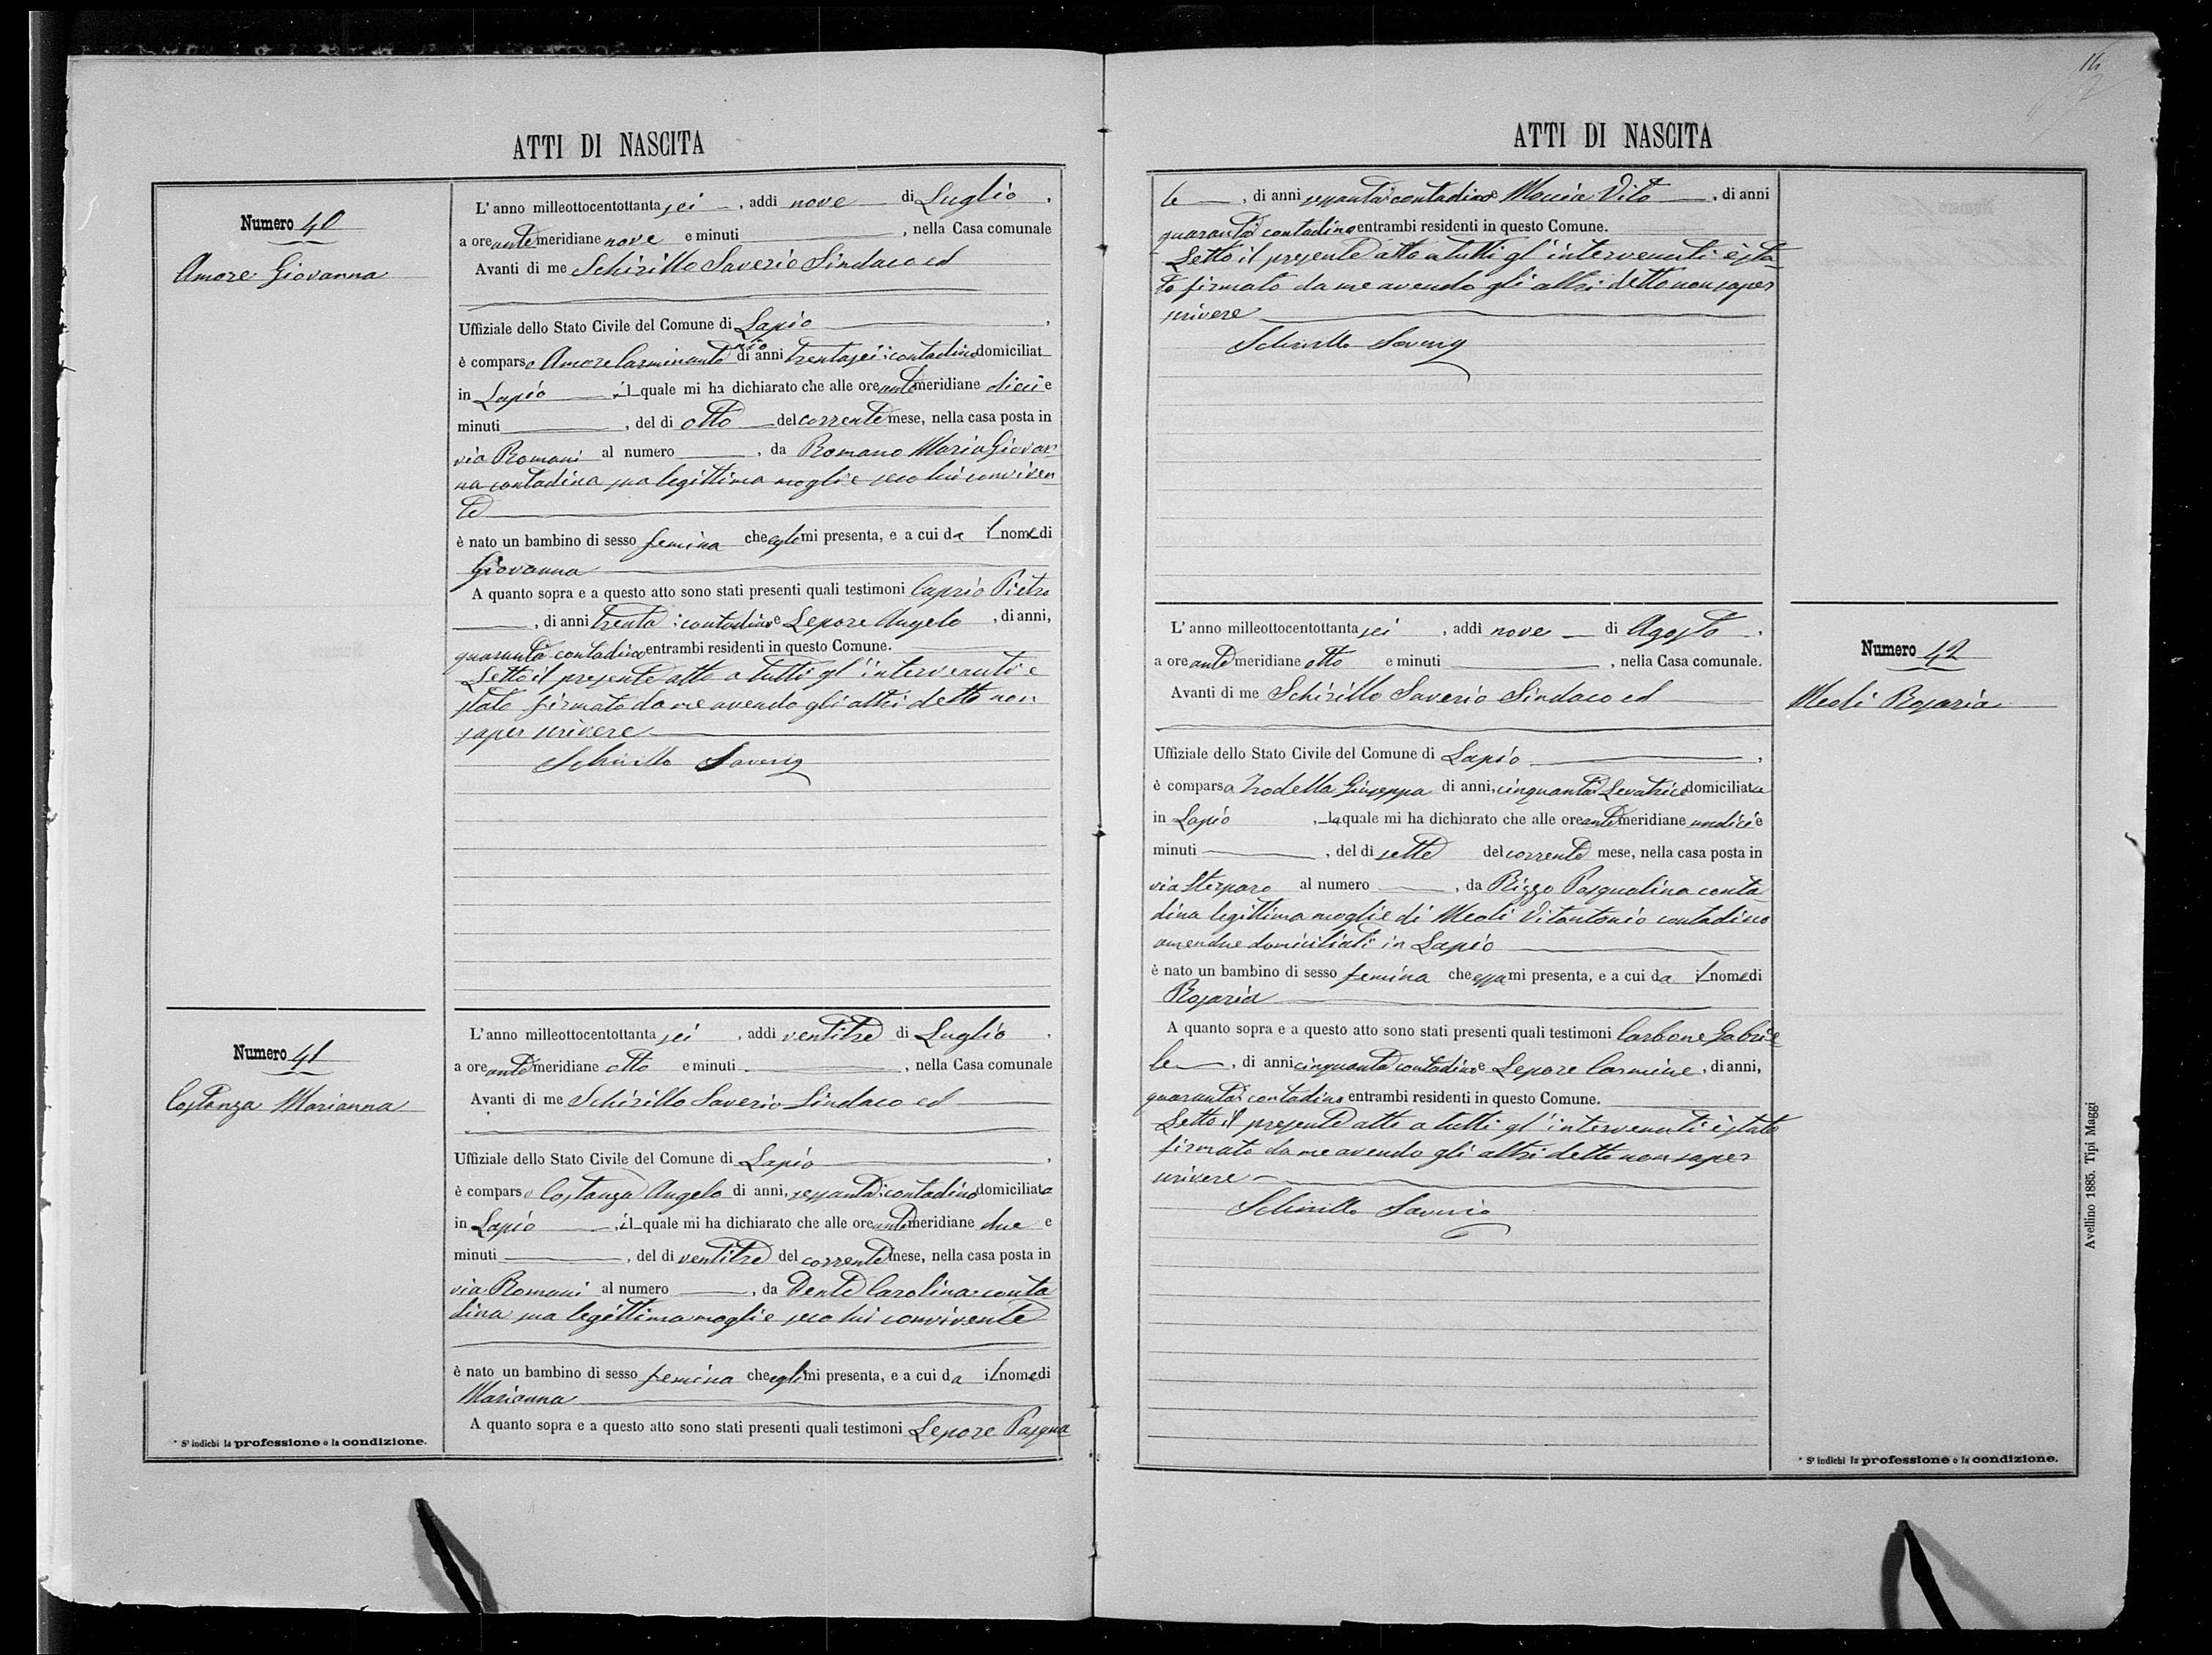 ATTI DI NASCITA
Numero 40
Amore Giovanna
L'anno milleottocentottanta sei, addi nove di Luglio,
a ore ante meridiane nove e minuti , nella Casa comunale
Avanti di me Schirillo Saverio Sindaco ed
Uffiziale dello Stato Civile del Comune di Lapio,
è comparso Amore Carminanto nio di anni trentasei contadino domiciliat
in Lapio, il quale mi ha dichiarato che alle ore ante meridiane dieci e
minuti , del di otto del corrente mese, nella casa posta in
via Romani al numero , da Romano Maria Giovan
na contadina sua legittima moglie seco lui conviven
te
è nato un bambino di sesso femina che egli mi presenta, e a cui da il nome di
Giovanna
A quanto sopra e a questo atto sono stati presenti quali testimoni Caprio Pietro
, di anni trenta contadino e Lepore Angelo, di anni,
quaranta contadino entrambi residenti in questo Comune.
Letto il presente atto a tutti gl'intervenuti è
stato firmato da me avendo gli altri detto non
saper scrivere
Schirillo Saverio
Numero 41
Costanza Marianna
L'anno milleottocentottanta sei, addi ventitre di Luglio,
a ore ante meridiane otto e minuti , nella Casa comunale
Avanti di me Schirillo Saverio Sindaco ed
Uffiziale dello Stato Civile del Comune di Lapio,
è comparso Costanza Angelo di anni, sessanta contadino domiciliato
in Lapio, il quale mi ha dichiarato che alle ore ante meridiane due e
minuti , del di ventitre del corrente mese, nella casa posta in
via Romani al numero , da Dente Carolina conta
dina sua legittima moglie seco lui convivente
è nato un bambino di sesso femina che egli mi presenta, e a cui da il nome di
Marianna
A quanto sopra e a questo atto sono stati presenti quali testimoni Lepore Pasqua
* S' indichi la professione o la condizione.
ATTI DI NASCITA
le, di anni sessanta contadino e Maccia Vito, di anni
quaranta contadino entrambi residenti in questo Comune.
Letto il presente atto a tutti gl'intervenuti è sta
to firmato da me avendo gli altri detto non saper
scrivere
Schirillo Saverio
L'anno milleottocentottanta sei, addi nove di Agosto,
a ore ante meridiane otto e minuti , nella Casa comunale.
Avanti di me Schirillo Saverio Sindaco ed
Uffiziale dello Stato Civile del Comune di Lapio,
è comparsa Giuseppa di anni, cinquanta Levatrice domiciliata
in Lapio, la quale mi ha dichiarato che alle ore ante meridiane undici e
minuti , del di sette del corrente mese, nella casa posta in
via Sterparo al numero , da Rizzo Pasqualina conta
dina legittima moglie di Meoli Vitantonio contadino
amendue domiciliati in Lapio
è nato un bambino di sesso femina che essa mi presenta, e a cui da il nome di
Rosaria
A quanto sopra e a questo atto sono stati presenti quali testimoni Carbone Gabrie
le, di anni cinquanta contadino e Lepore Carmine, di anni,
quaranta contadino entrambi residenti in questo Comune.
Letto il presente atto a tutti gl'intervenuti è stato
firmato da me avendo gli altri detto non saper
scrivere
Schirillo Saverio
Numero 42
Meoli Rosaria
* S' indichi la professione o la condizione.
Avellino 1885. Tipi Maggi